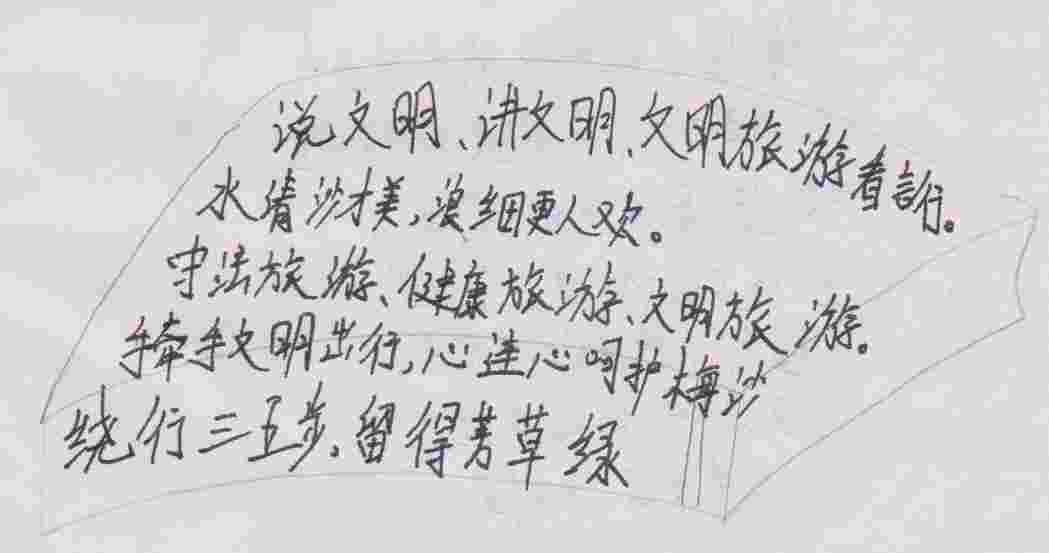 说文明、讲文明、文明旅游看言行。
水清沙才美,浪细更人欢。
守法旅游、健康旅游、文明旅游。
手牵手文明出行,心连心呵护梅沙
绕行三五步.留得芳草绿